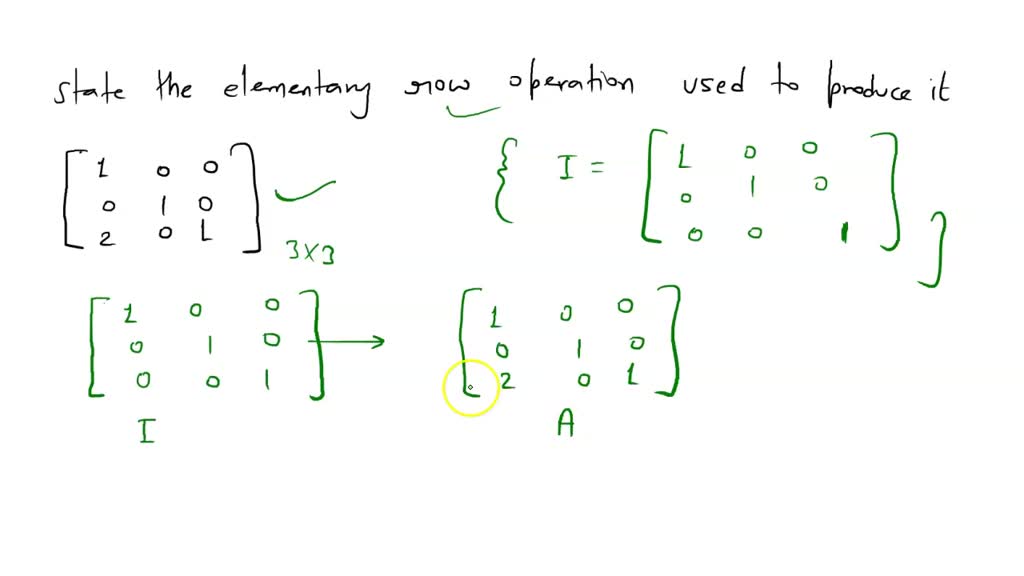 state the elementary row operation used to produce it
1 0 0
0 1 0
2 0 1
3×3
{ I =
1 0 0
0 1 0
0 0 1
}
1 0 0
0 1 0
0 0 1
I
→
1 0 0
0 1 0
2 0 1
A